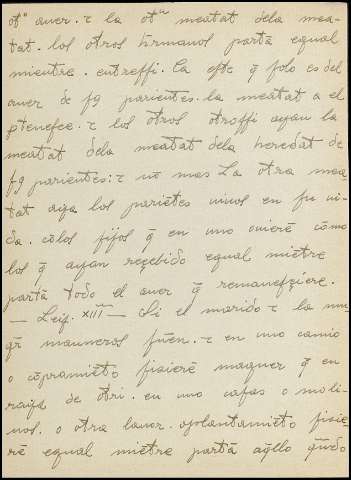 otº auer. τ la otᵃ meatat dela mea-
tat. los otros hrmanos partā equal
mientre. entressi. Ca este q̄ solo es del
auer de sꝯ parientes. la meatat a el
ꝑtenesce. τ los otros otrossi ayan la
meatāt dela meatat dela heredat de
sꝯ parientes: τ nō mas La otra mea
tat aya los pariētes uiuos en su ui-
da. cōlos fijos q̄ en uno ouierē cōmo
los q̄ ayan reçebido equal miētre
partā todo el auer q̄ remaneşçiere.
— Leiş. XIII — Si el marido τ la mu
gr̄ mauneros fuēn. τ en uno camio
o cōpramiēto fizierē maguer q̄ en
rayz de otri. en uno casas o moli-
nos. o otra lauor. ᴏplantamiēto fizie
rē equal miētre partā aq̄llo q̄ndo